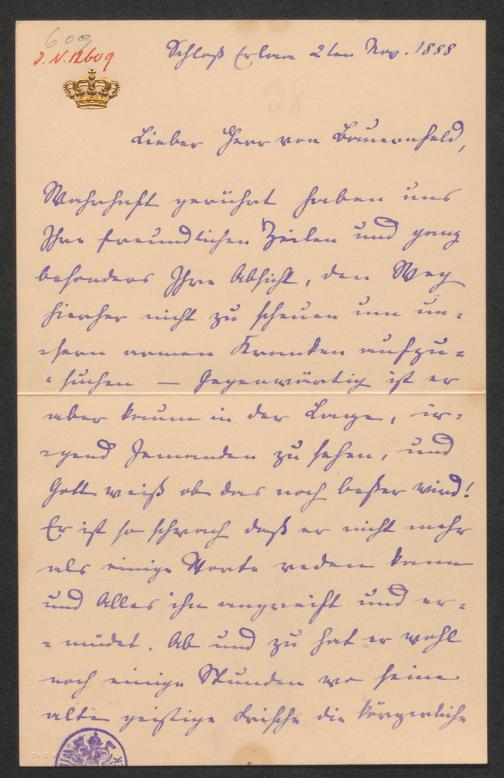 609
J.N. 12609
Schloß Erlaa 2ten Nov. 1888
38
Lieber Herr von Bauernfeld,
Wahrhaft gerührt haben uns
Ihre freundlichen Zeilen und ganz
besonders Ihre Absicht, den Weg
hierher nicht zu scheuen um un-
-sern armen Kranken aufzu-
-suchen — Gegenwärtig ist er
aber kaum in der Lage, ir-
-gend Jemanden zu sehen, und
Gott weiß ob das noch beßer wird!
Er ist so schwach daß er nicht mehr
als einige Worte reden kann
und Alles ihn angreift und er-
-müdet. Ab und zu hat er wohl
noch einige Stunden wo seine
alte geistige Frische die körperliche